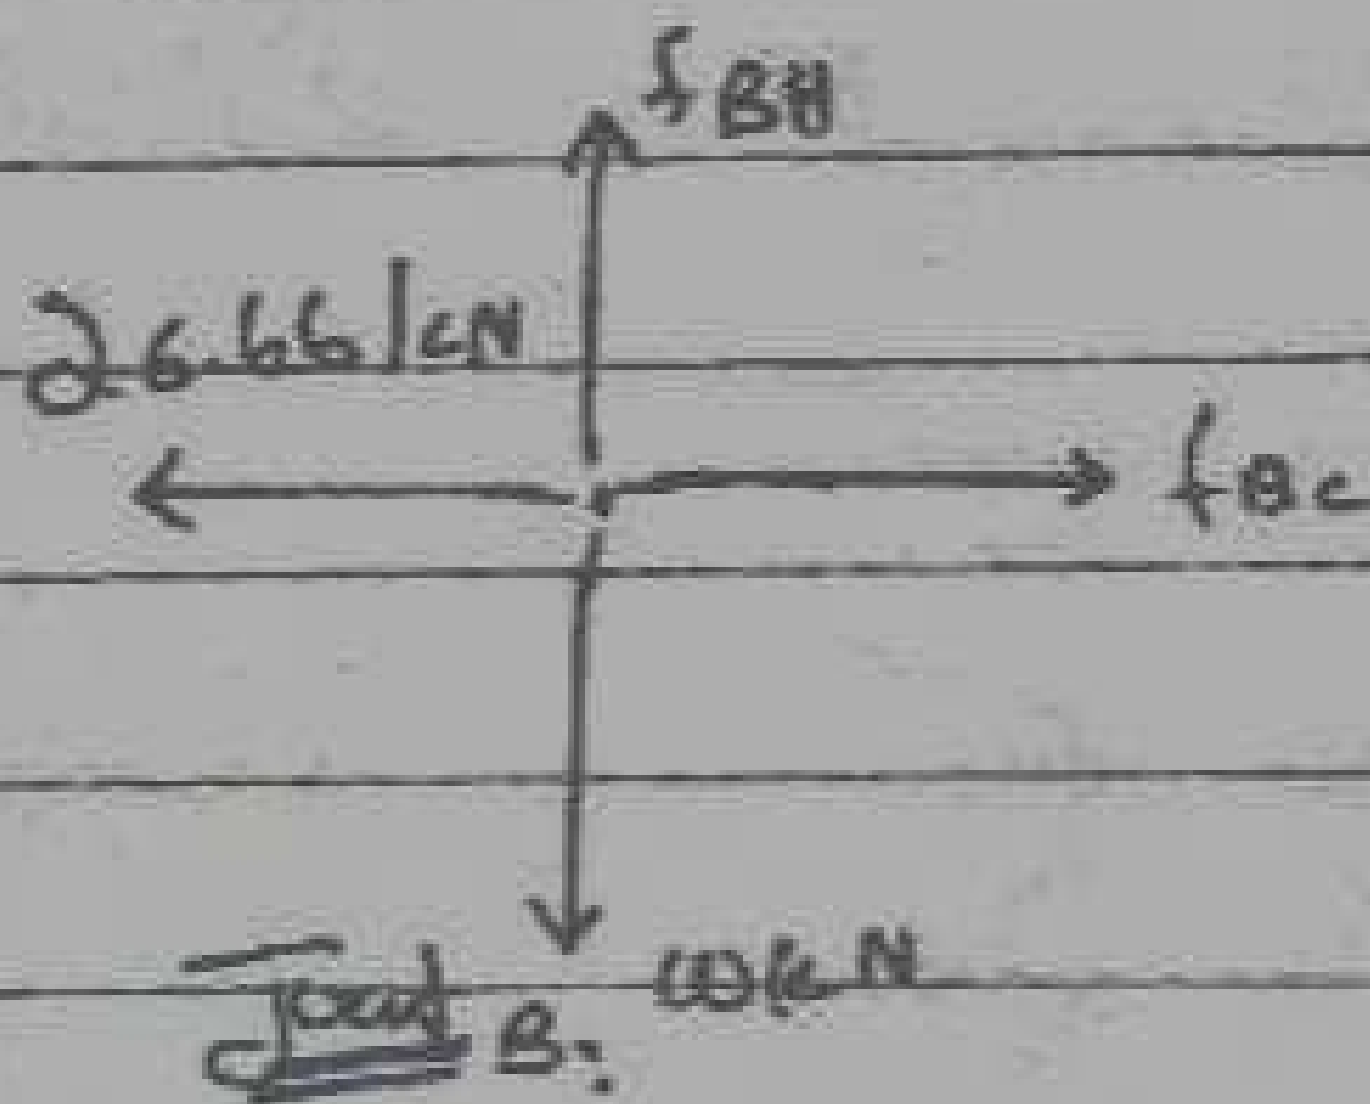 fBH
26.66 kN
fBC
kN
Joint B: